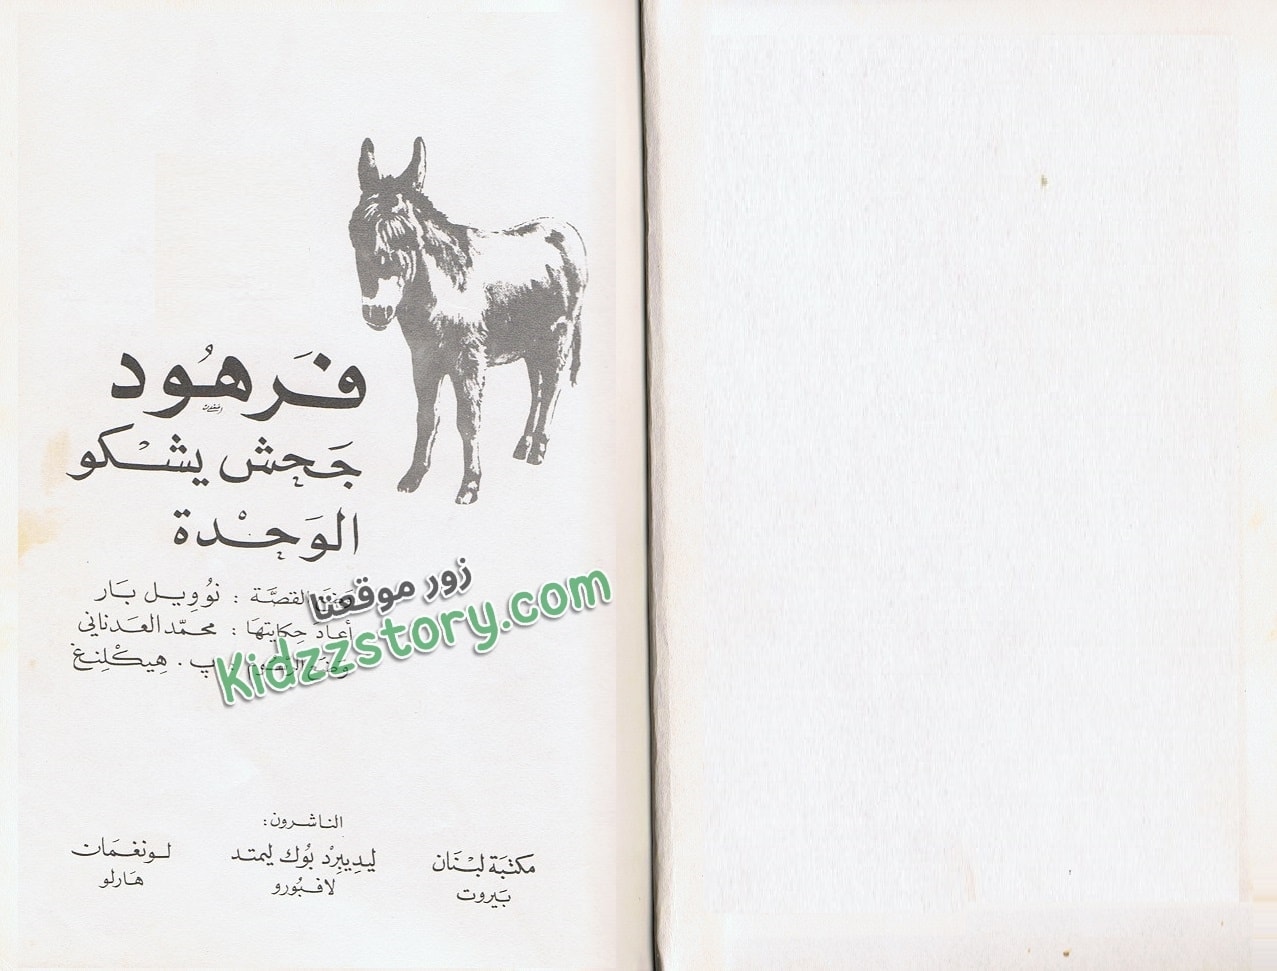 فَرهُود
جَحش يشْكو
الوَحْدة
القصَّة : نوُويل بَار
أعاد حِكايتها : محمّد العَدناني
وضع الرسُوم : پ . هِيكْلِنغ
زور موقعنا
Kidzzstory.com
الناشرون:
مكتبَة لبْنَان
بَيروت
ليدِيبِرْد بُوك ليمتد
لافبُورو
لونغمَان
هَارلو